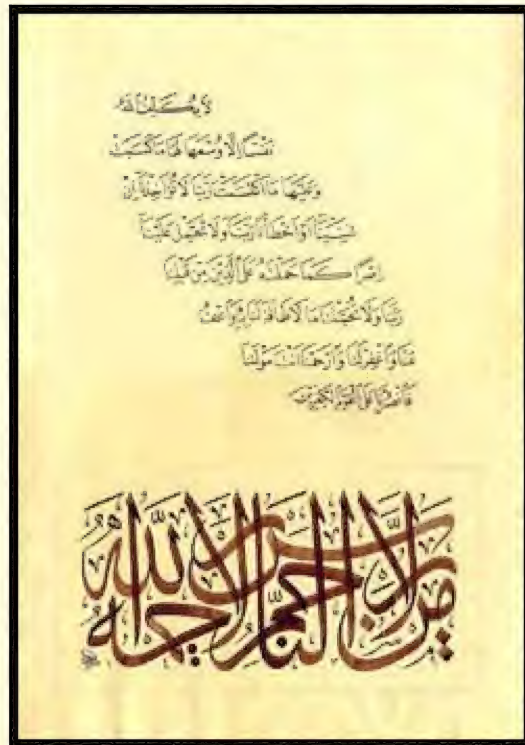 لَا يُكَلِّفُ اللَّهُ
نَفْسًا إِلَّا وُسْعَهَا لَهَا مَا كَسَبَتْ
وَعَلَيْهَا مَا اكْتَسَبَتْ رَبَّنَا لَا تُؤَاخِذْنَا إِنْ
نَسِينَا أَوْ أَخْطَأْنَا رَبَّنَا وَلَا تَحْمِلْ عَلَيْنَا
إِصْرًا كَمَا حَمَلْتَهُ عَلَى الَّذِينَ مِنْ قَبْلِنَا
رَبَّنَا وَلَا تُحَمِّلْنَا مَا لَا طَاقَةَ لَنَا بِهِ وَاعْفُ
عَنَّا وَاغْفِرْ لَنَا وَارْحَمْنَا أَنْتَ مَوْلَانَا
فَانْصُرْنَا عَلَى الْقَوْمِ الْكَافِرِينَ
من لا يرحم الناس لا يرحمه الله